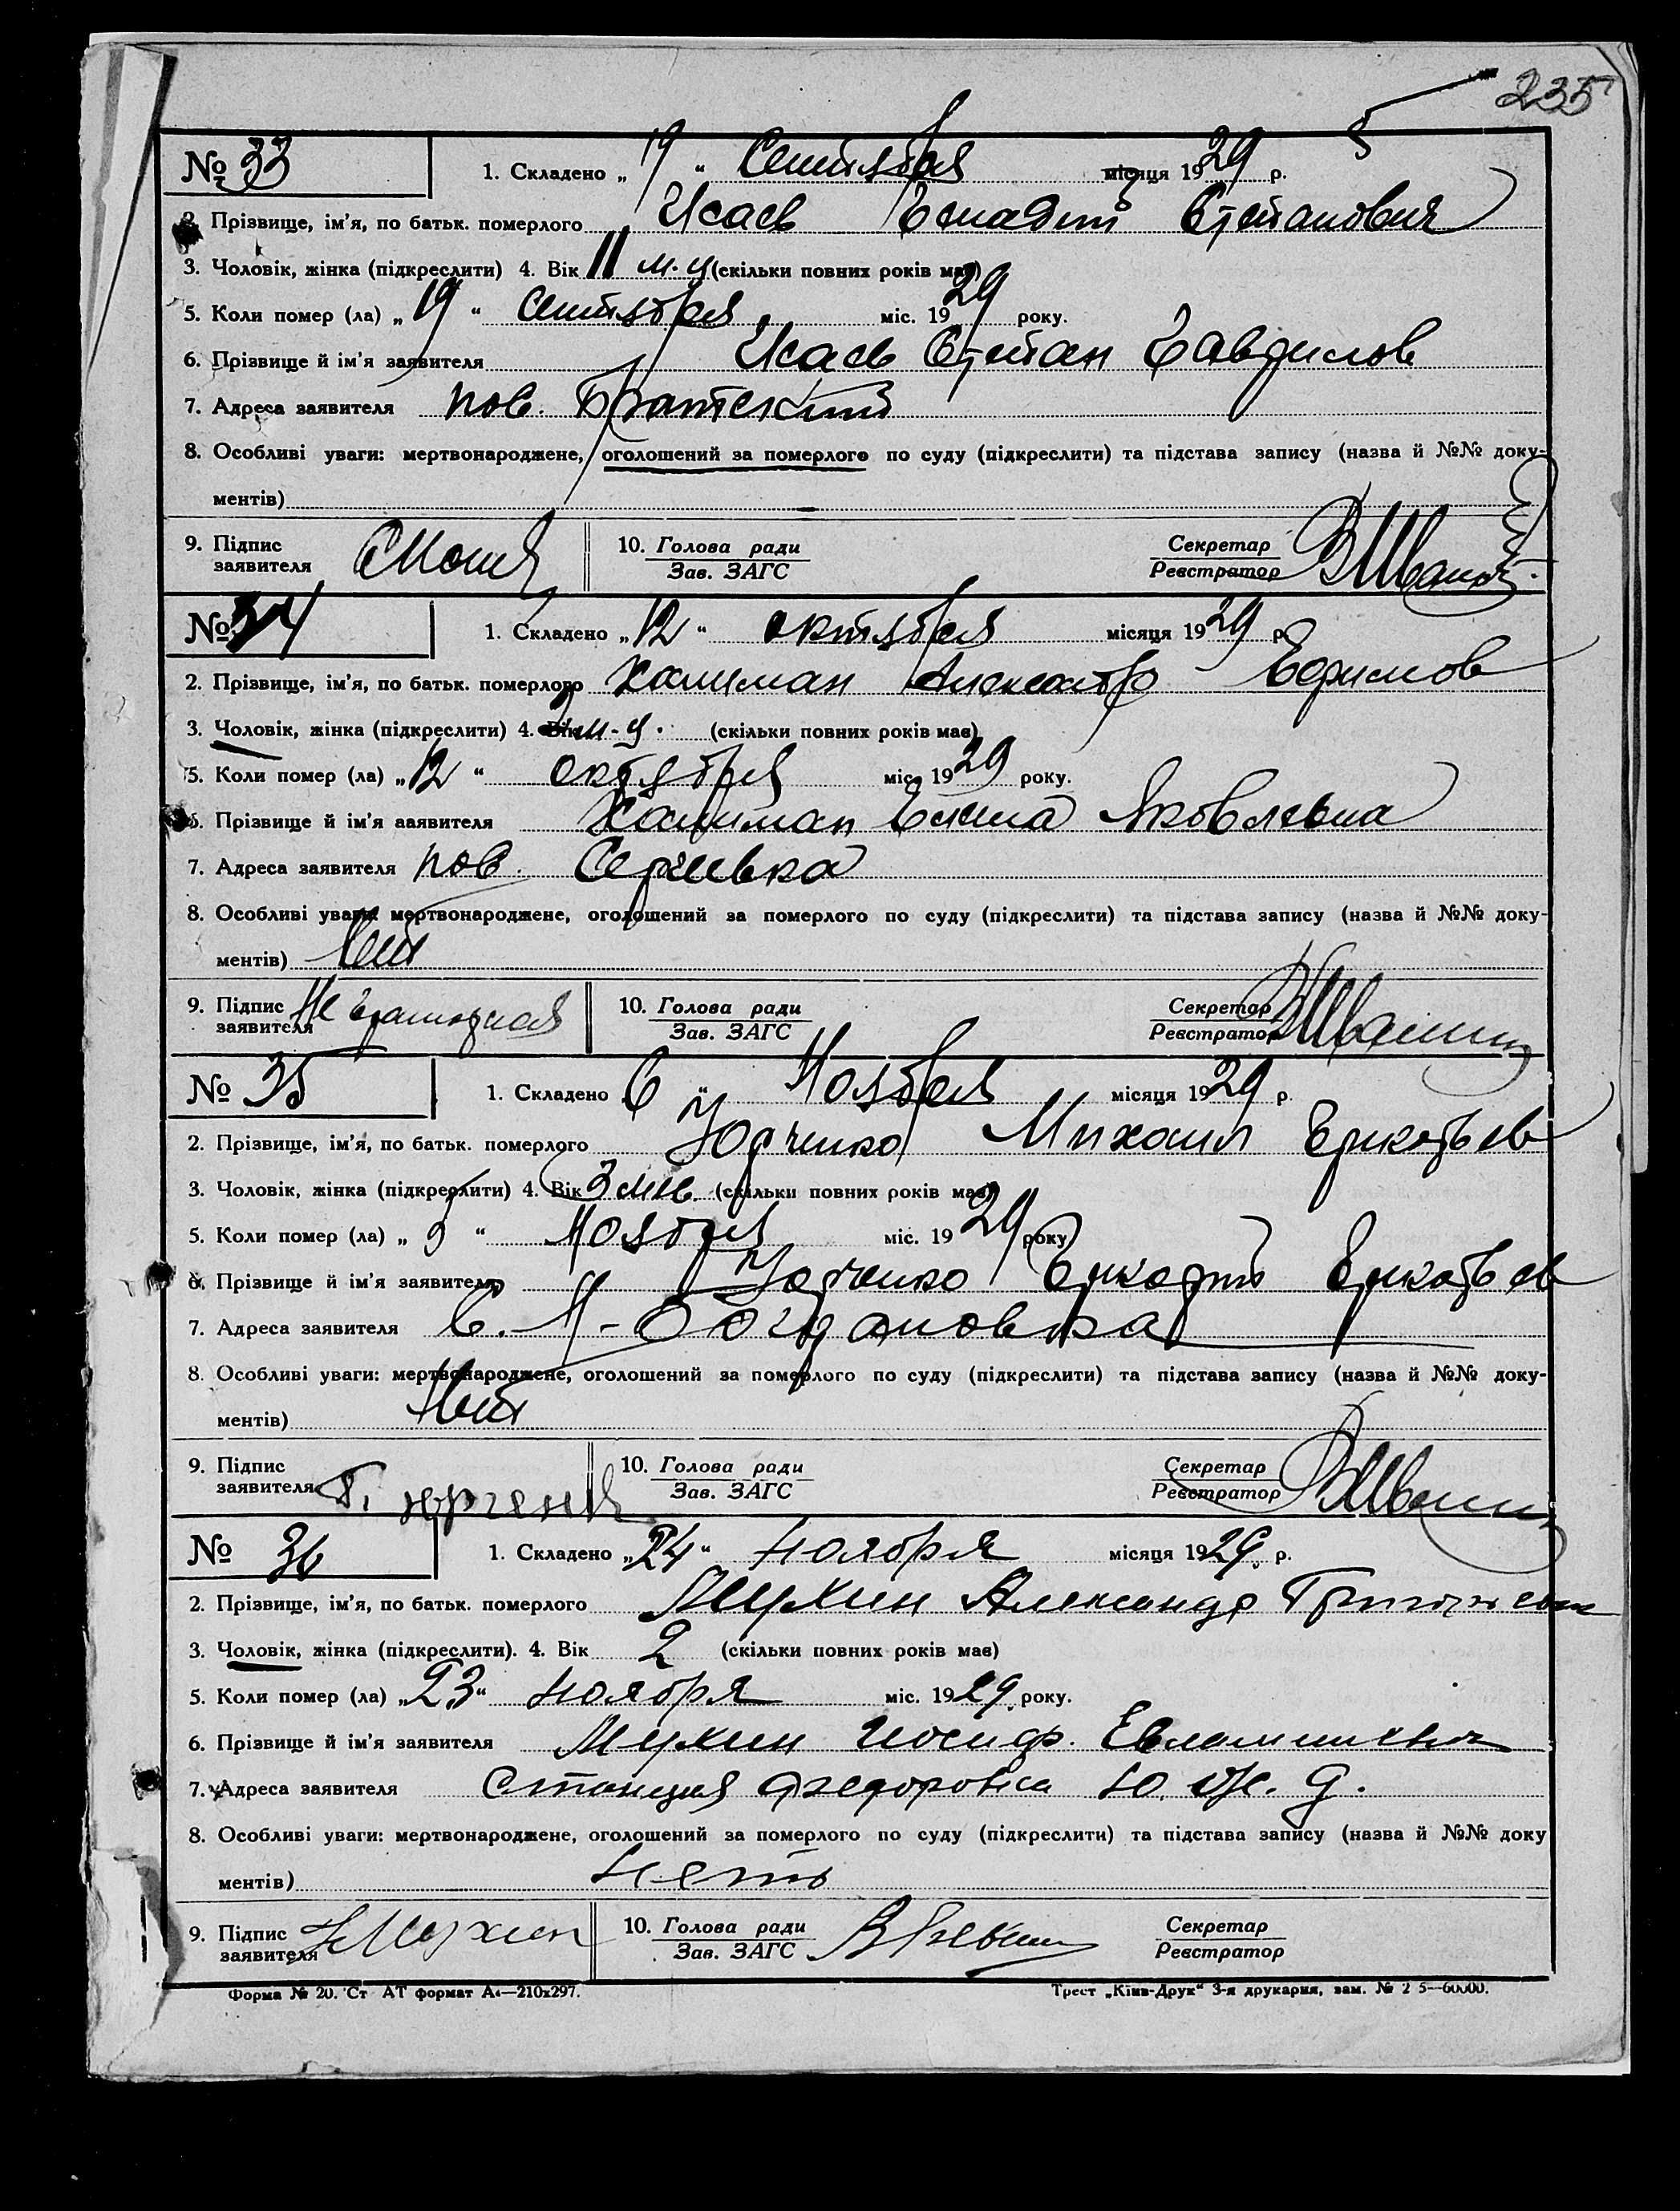 235
№ 33 1. Складено „19“ Сентября місяця 1929 р.
2. Прізвище, ім'я, по батьк. померлого Исаев Генадий Степанович
3. Чоловік, жінка (підкреслити) 4. Вік 11 м-ц (скільки повних років має)
5. Коли помер (ла) „19“ Сентября міс. 1929 року.
6. Прізвище й ім'я заявителя Исаев Степан Гаврилов
7. Адреса заявителя пос. Братский
8. Особливі уваги: мертвонароджене, оголошений за померлого по суду (підкреслити) та підстава запису (назва й №№ доку-
ментів)
9. Підпис заявителя 10. Голова ради Зав. ЗАГС Секретар Реєстратор
№ 34 1. Складено „12“ октября місяця 1929 р.
2. Прізвище, ім'я, по батьк. померлого Александр Ефимов
3. Чоловік, жінка (підкреслити) 4. Вік м-ц. (скільки повних років має)
5. Коли помер (ла) „12“ октября міс. 1929 року.
6. Прізвище й ім'я заявителя Елена Яковлевна
7. Адреса заявителя пос. Сергеевка
8. Особливі уваги: мертвонароджене, оголошений за померлого по суду (підкреслити) та підстава запису (назва й №№ доку-
ментів) Нет
9. Підпис заявителя Не грамотная 10. Голова ради Зав. ЗАГС Секретар Реєстратор
№ 35 1. Складено 6 “ Ноября місяця 1929 р.
2. Прізвище, ім'я, по батьк. померлого Юрченко Михаил
3. Чоловік, жінка (підкреслити) 4. Вік 3 мес. (скільки повних років має)
5. Коли помер (ла) „ “ Ноября міс. 1929 року
6. Прізвище й ім'я заявителя Юрченко
7. Адреса заявителя с. Н-Богдановка
8. Особливі уваги: мертвонароджене, оголошений за померлого по суду (підкреслити) та підстава запису (назва й №№ доку-
ментів) Нет
9. Підпис заявителя 10. Голова ради Зав. ЗАГС Секретар Реєстратор
№ 36 1. Складено „24“ ноября місяця 1929. р.
2. Прізвище, ім'я, по батьк. померлого Мухин Александр
3. Чоловік, жінка (підкреслити). 4. Вік 2 (скільки повних років має)
5. Коли помер (ла) „23“ ноября міс. 1929. року.
6. Прізвище й ім'я заявителя Мухин Иосиф. Евлампиевич
7. Адреса заявителя Станция Федоровка Ю. Ж. Д.
8. Особливі уваги: мертвонароджене, оголошений за померлого по суду (підкреслити) та підстава запису (назва й №№ доку
ментів) нетъ
9. Підпис заявителя Мухин 10. Голова ради Зав. ЗАГС Секретар Реєстратор
Форма № 20. Ст АТ формат А4—210х297. Трест „Київ-Друк“ 3-я друкарня, зам. №